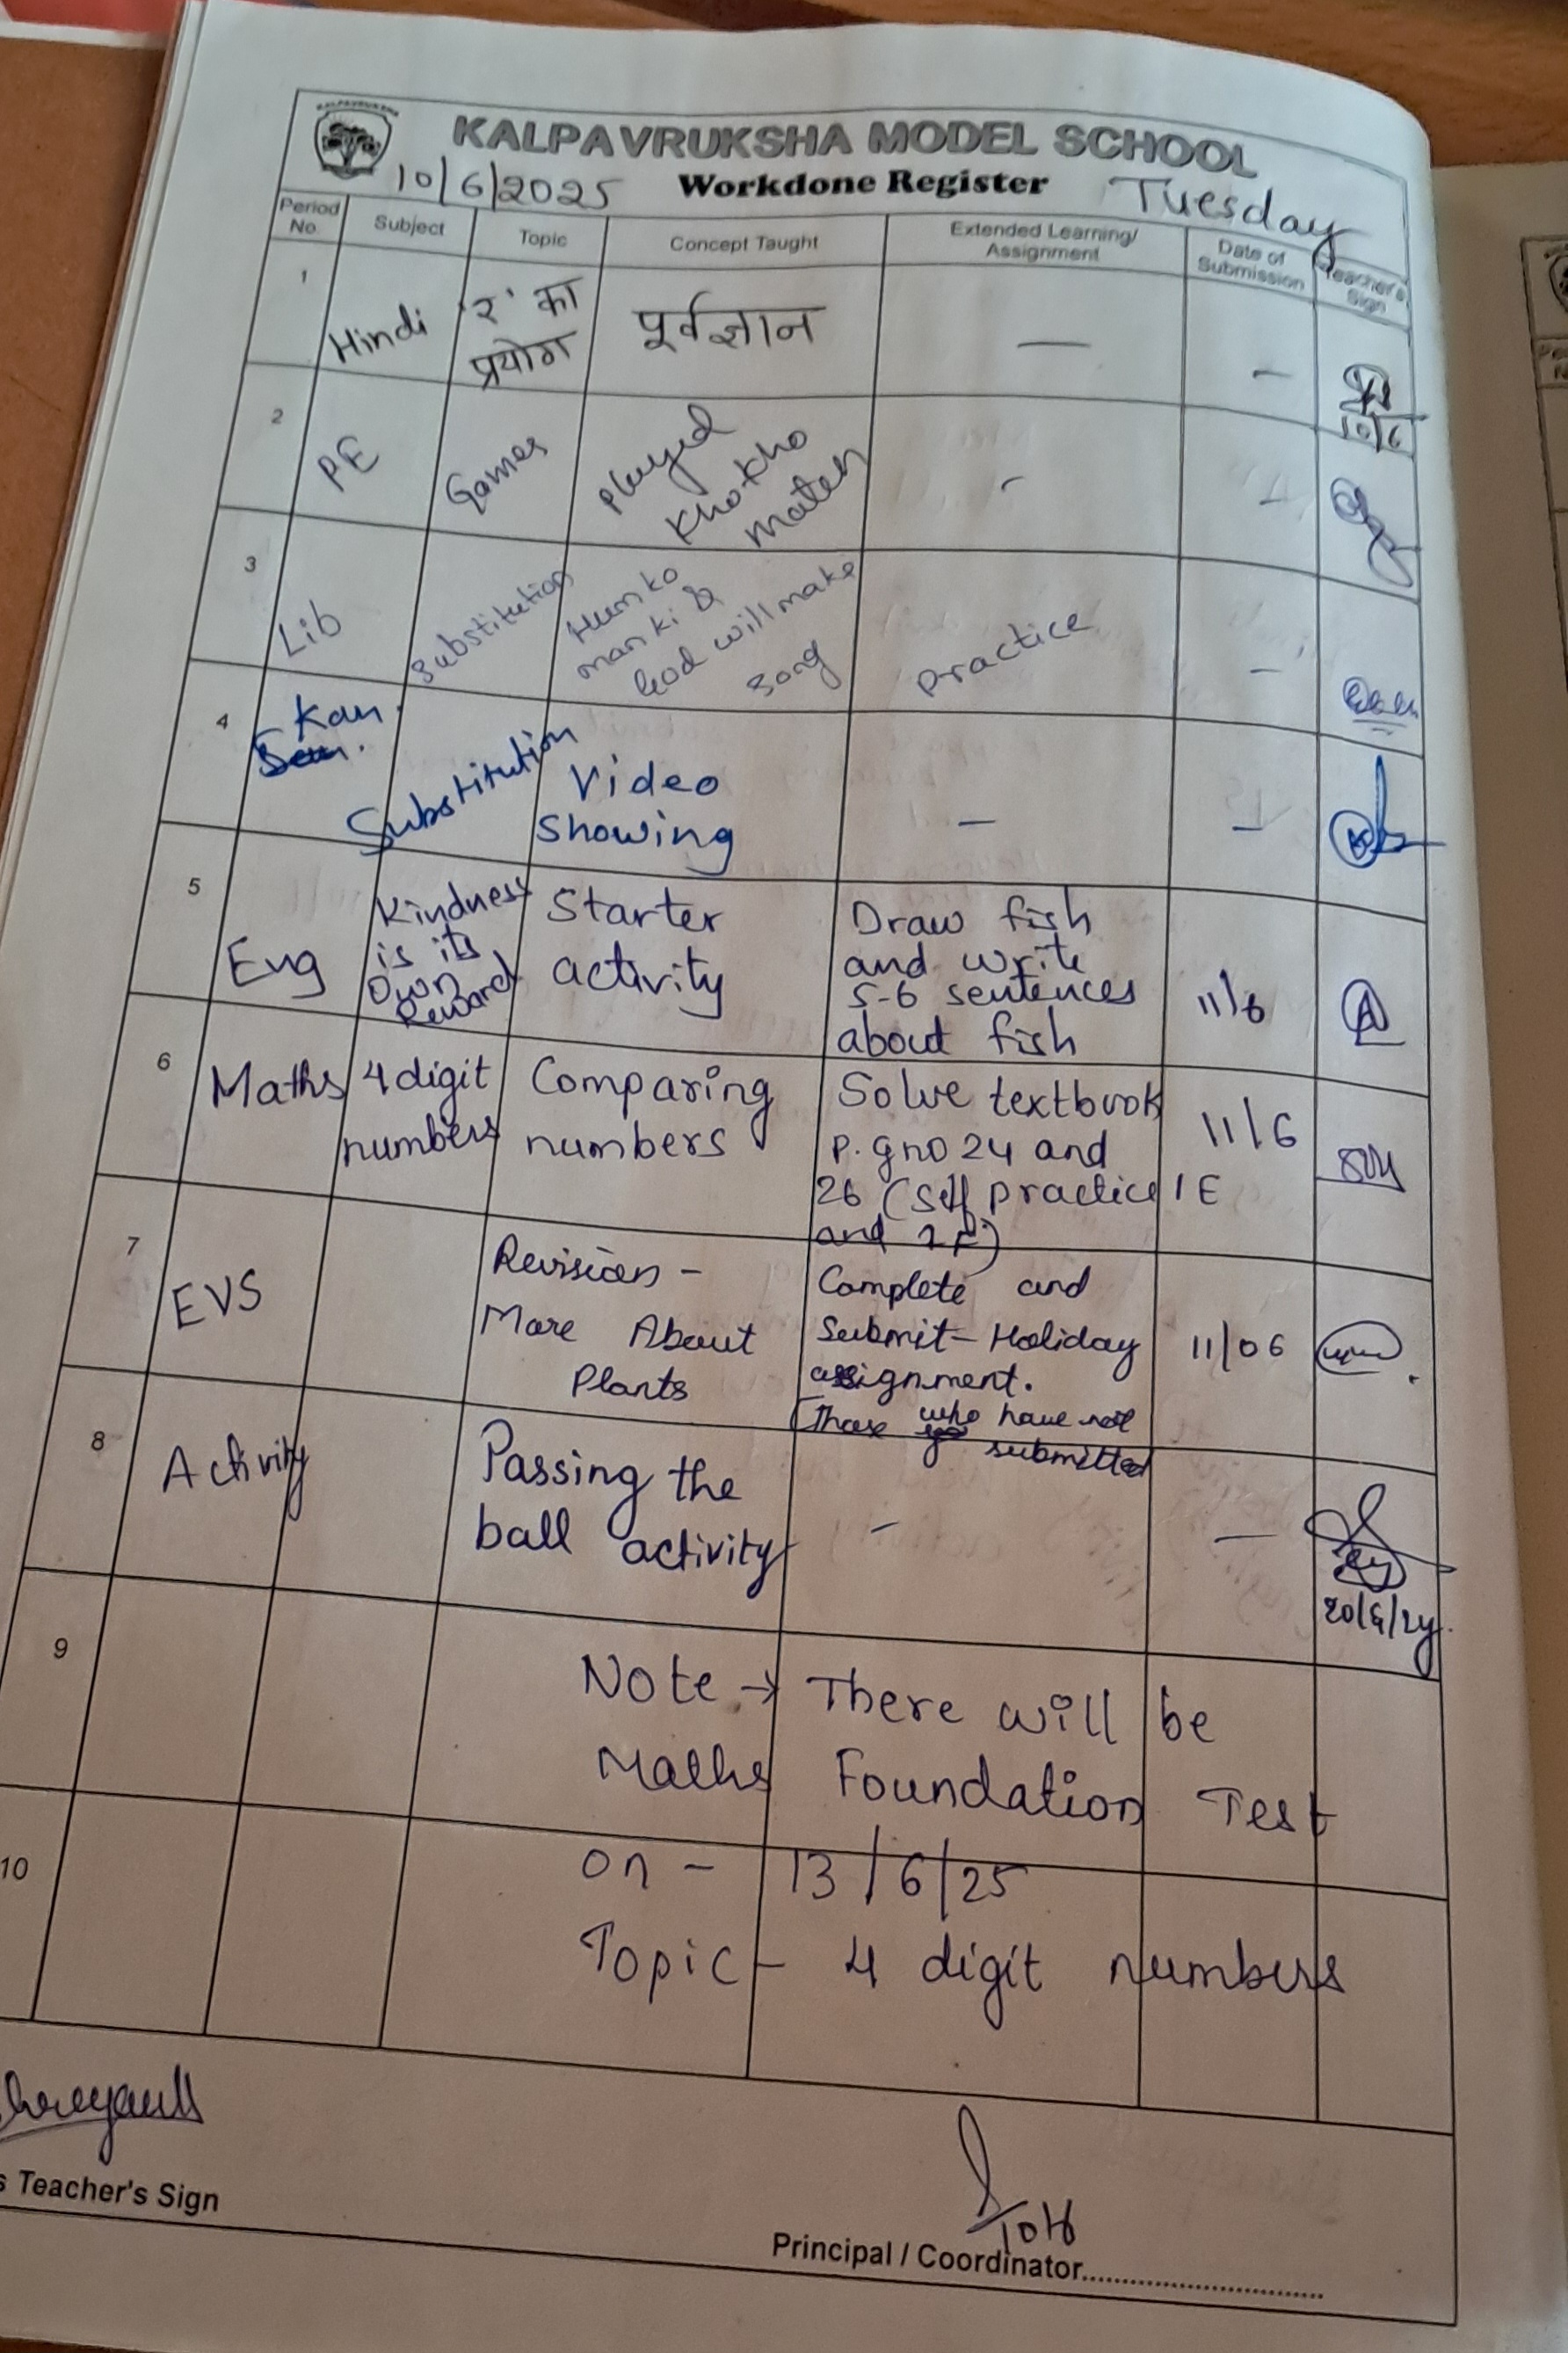 KALPAVRUKSHA
KALPAVRUKSHA MODEL SCHOOL
10/6/2025 Workdone Register Tuesday
Period No. Subject Topic Concept Taught Extended Learning/ Assignment Date of Submission Teacher's Sign
1 Hindi 'र' का प्रयोग पूर्वज्ञान — –
10/6
2 PE Games Played Kho-Kho match - -
3 Lib Substitution Hum ko man ki & God will make song Practice –
4 Kan. Substitution Video Showing – –
5 Eng Kindness is its Own Reward Starter activity Draw fish and write 5-6 sentences about fish 11/6
6 Maths 4 digit numbers Comparing numbers Solve textbook p.g no 24 and 26 (Self practice 1E and 1F) 11/6
7 EVS Revision - More About Plants Complete and Submit - Holiday assignment. (Those who have not submitted 11/06
8 Activity Passing the ball activity - —
9
Note → There will be
Maths Foundation Test
10
on - 13/6/25
Topic - 4 digit numbers
s Teacher's Sign
Principal / Coordinator..............................